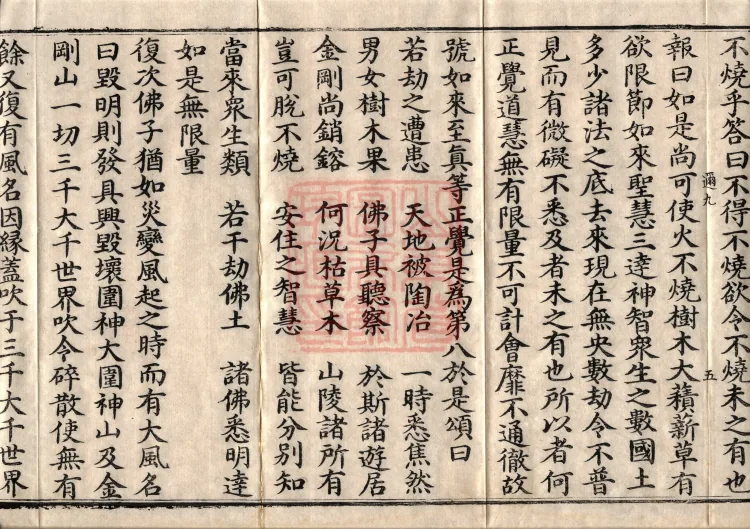 不燒乎答曰不得不燒欲令不燒未之有也
報曰如是尚可使火不燒樹木大積薪草有
欲限節如來聖慧三達神智衆生之數國土
多少諸法之底去來現在無央數劫令不普
見而有微礙不悉及者未之有也所以者何
正覺道慧無有限量不可計會靡不通徹故
號如來至真等正覺是爲第八於是頌曰
若劫之遭患 天地被陶冶 一時悉焦然
男女樹木果 佛子具聽察 於斯諸遊居
金剛尚銷鎔 何況枯草木 山陵諸所有
豈可脫不燒 安住之智慧 皆能分別知
當來衆生類 若干劫佛土 諸佛悉明達
如是無限量
復次佛子猶如災變風起之時而有大風名
曰毀明則發具興毀壞圍神大圍神山及金
剛山一切三千大千世界吹令碎散使無有
餘又復有風名因緣蓋吹于三千大千世界
邇九
五